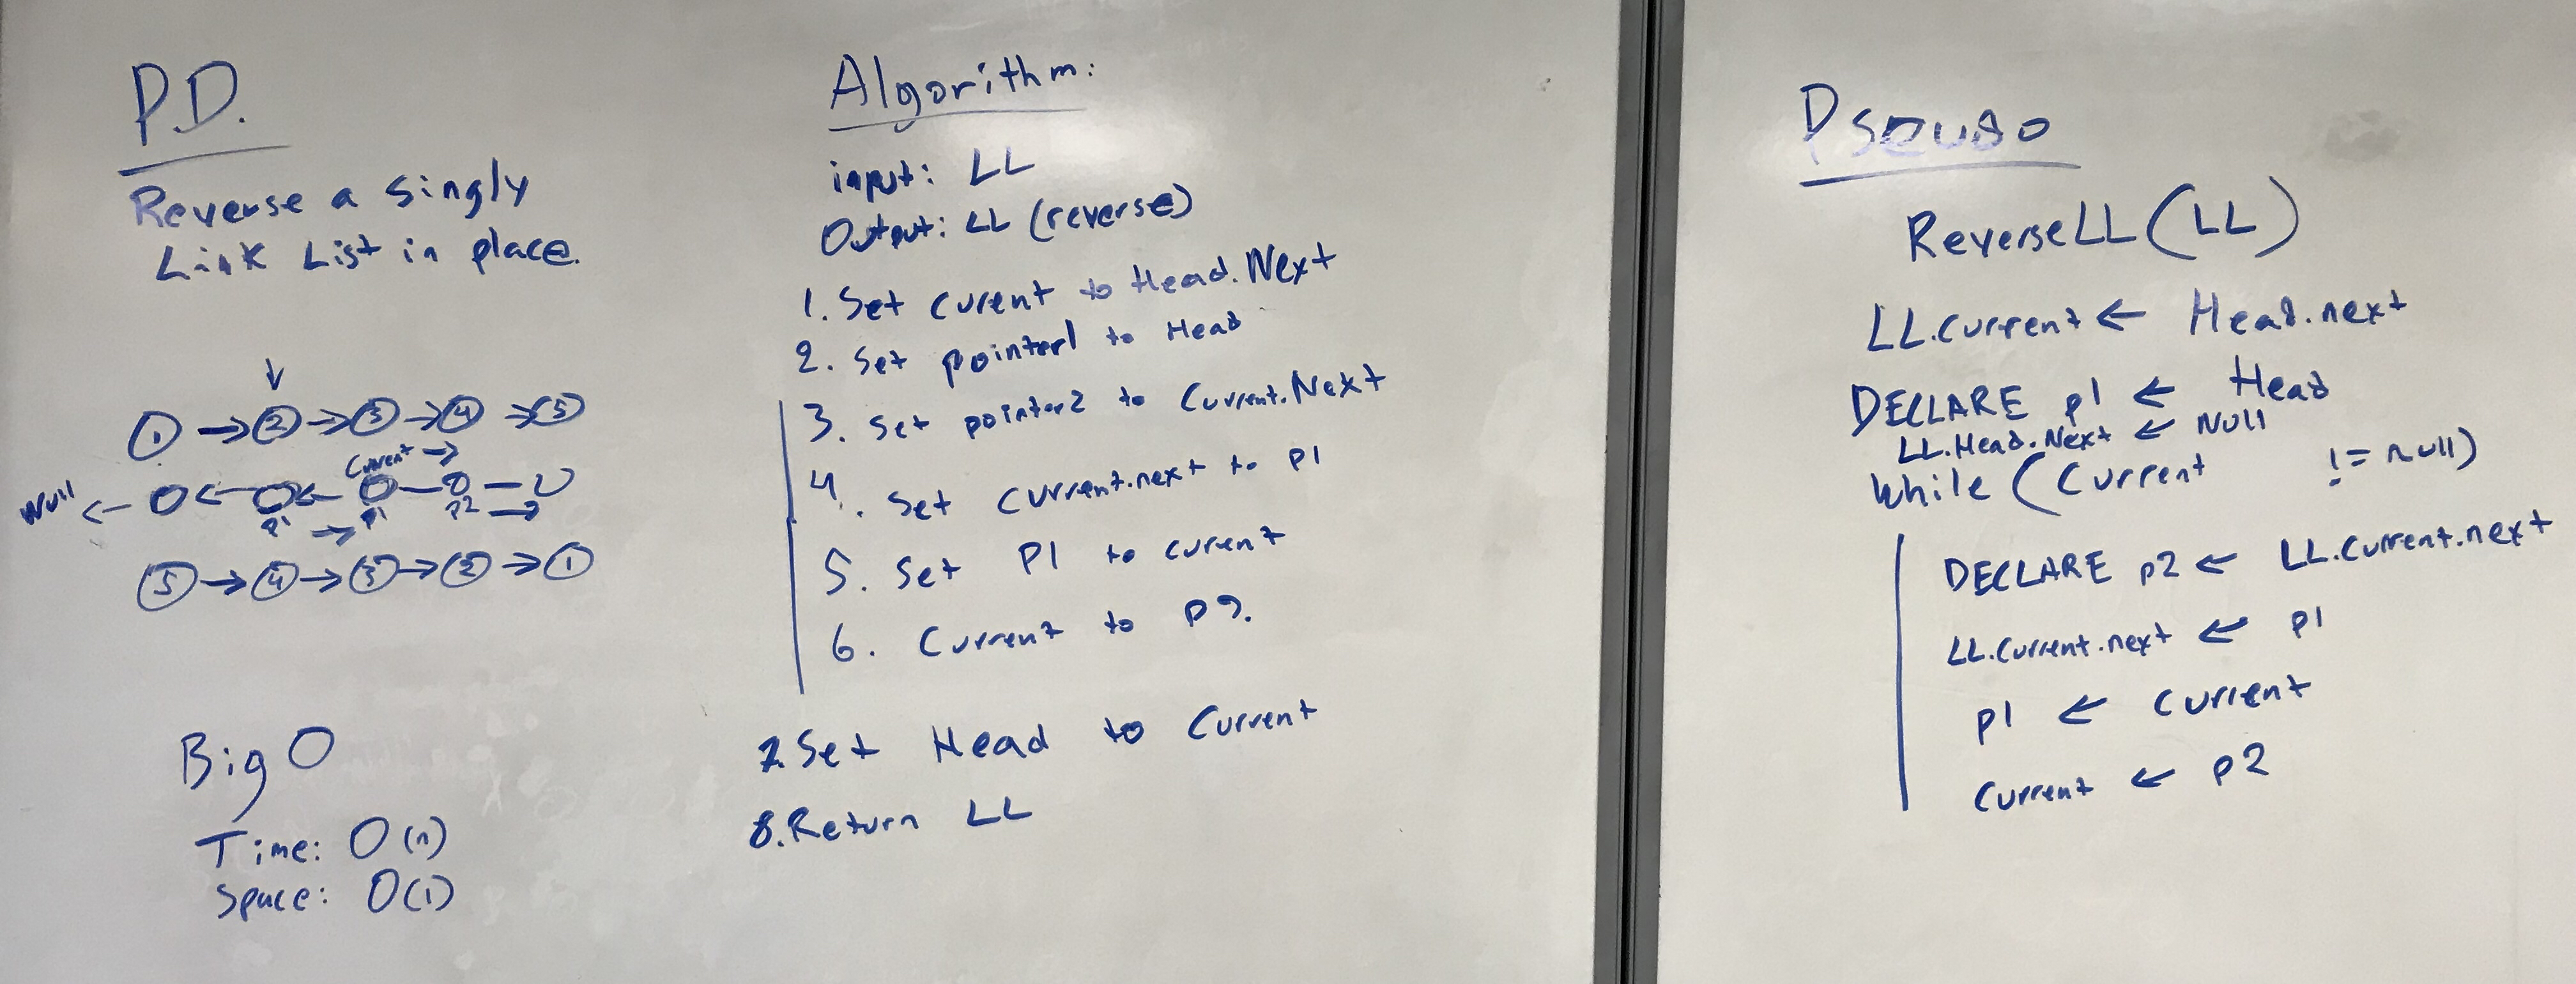 P.D.
Reverse a singly
Link List in place.
↓
1 → 2 → 3 → 4 → 5
Current →
Null ←
p1 → p1 p2 →
5 → 4 → 3 → 2 → 1
Big O
Time: O(n)
Space: O(1)
Algorithm:
input: LL
Output: LL (reverse)
1. Set Curent to Head.Next
2. Set pointer1 to Head
3. Set pointer2 to Current.Next
4. Set Current.next to P1
5. Set P1 to curent
6. Current to P2.
7. Set Head to Current
8. Return LL
Pseudo
ReverseLL (LL)
LL.Current ← Head.next
DECLARE p1 ← Head
LL.Head.Next ← Null
While (Current != null)
DECLARE p2 ← LL.Current.next
LL.Current.next ← p1
p1 ← Current
Current ← p2